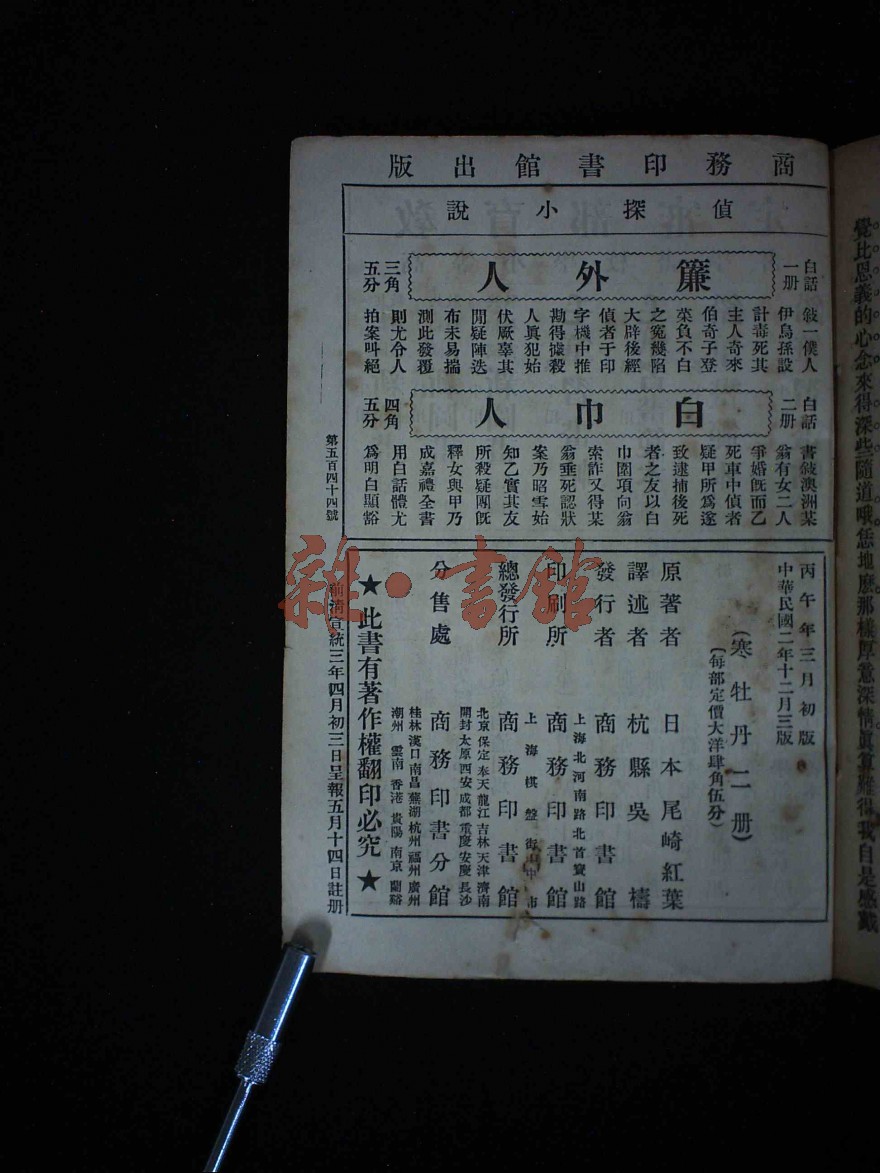 商務印書館出版
偵探小說
白話一册
簾外人
三角五分
敍一僕人
伊烏孫設
計毒死其
主人奇來
伯奇子登
菜負不白
之冤幾陷
大辟後經
偵者于印
字機中推
勘得據殺
人眞犯始
伏厥辜其
間疑陣迭
布未易揣
測此發覆
則尤令人
拍案叫絕
白話二册
白巾人
四角五分
書敍澳洲某
翁有女二人
爭婚旣而乙
死車中偵者
疑甲所爲遂
致逮捕後死
者之友以白
巾圍項向翁
索詐又得某
翁垂死認狀
案乃昭雪始
知乙實其友
所殺疑團旣
釋女與甲乃
成嘉禮全書
用白話體尤
爲明白顯豁
第五百四十四號
丙午年三月初版
中華民國二年十二月三版
(寒牡丹二册)
(每部定價大洋肆角伍分)
原著者 日本尾崎紅葉
譯述者 杭縣吳檮
發行者 商務印書館
上海北河南路北首寶山路
印刷所 商務印書館
上海棋盤街中市
總發行所 商務印書館
北京保定奉天龍江吉林天津濟南
開封太原西安成都重慶安慶長沙
分售處 商務印書分館
桂林漢口南昌蕪湖杭州福州廣州
潮州 雲南 香港 貴陽 南京 蘭谿
★此書有著作權翻印必究★
前清宣統三年四月初三日呈報五月十四日註册
雜·書館
覺比恩義的心念來得深些隨道哦恁地麽那樣厚意深情眞算難得我自是感戴